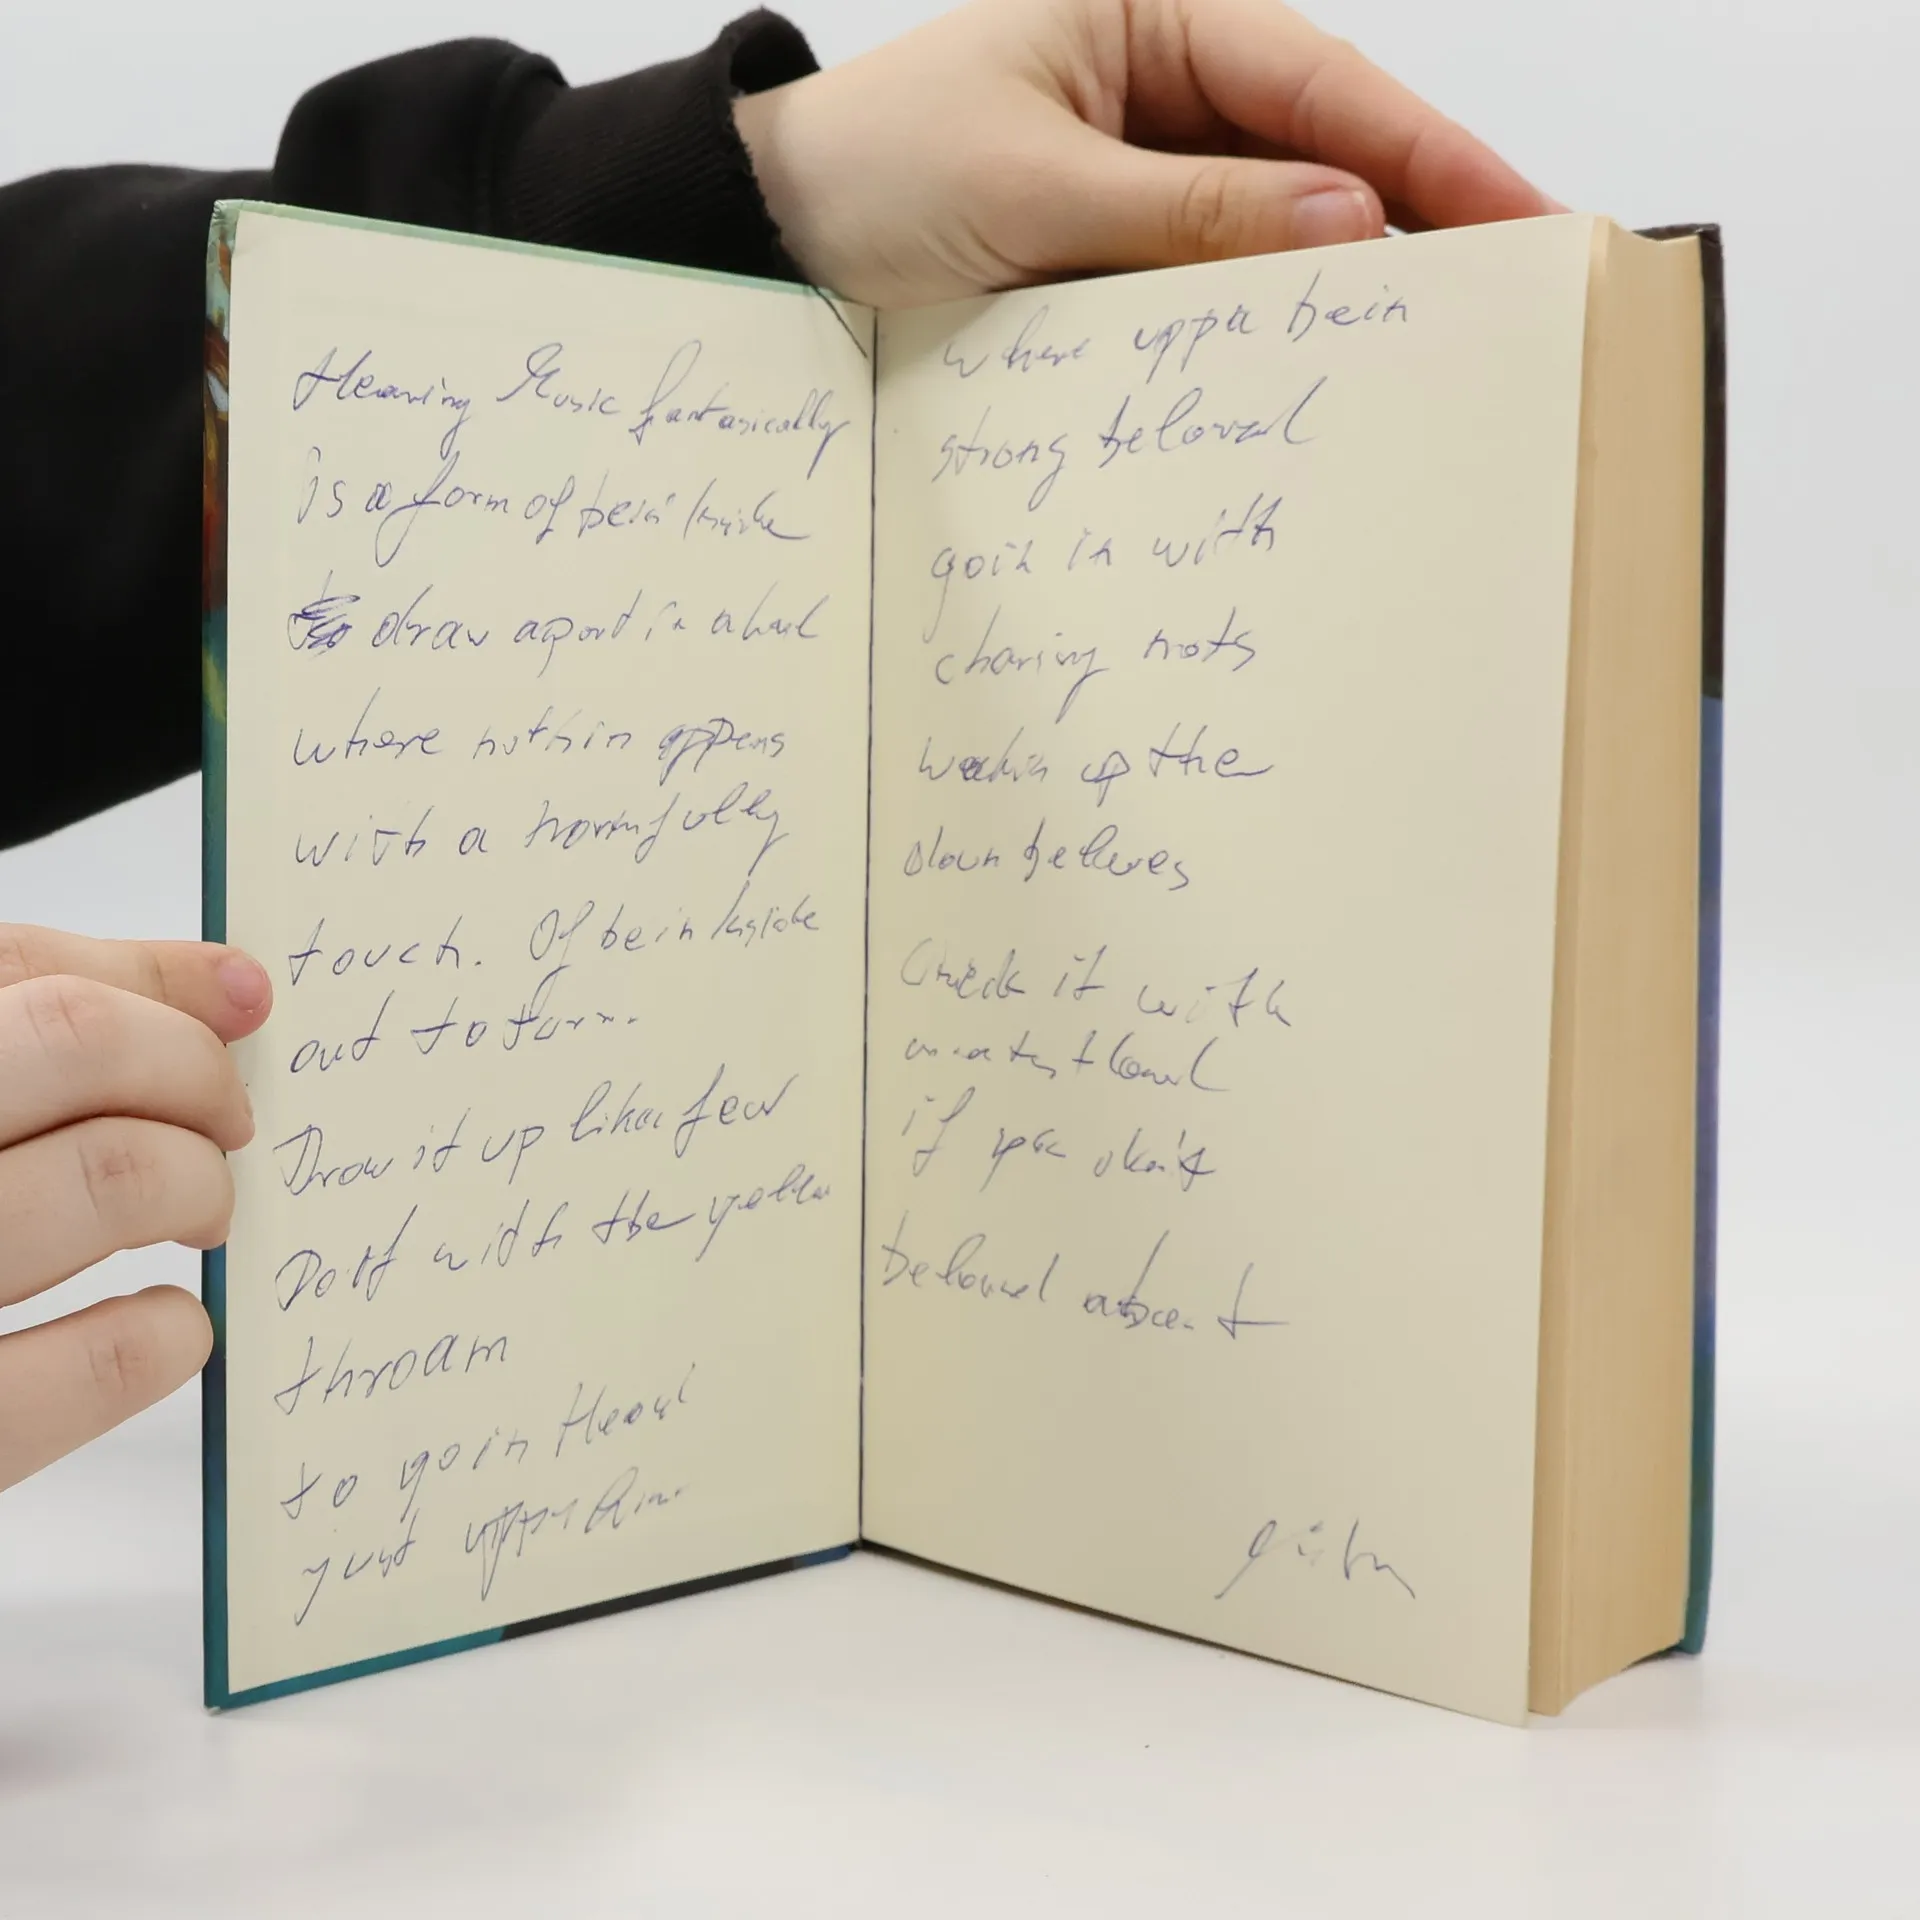 Hearing Music fantasically
is a form of bein inside
draw apart in a
where nothin appens
with a harmfully
touch. Of bein Inside
out to turn.
Draw it up like a few
Do it with the yellow
throam
to go in Head
just upper
where uppa bein
strong beloved
goin in with
charing nots
wakin up the
down believes
Check it with
if you don't
beloved absent